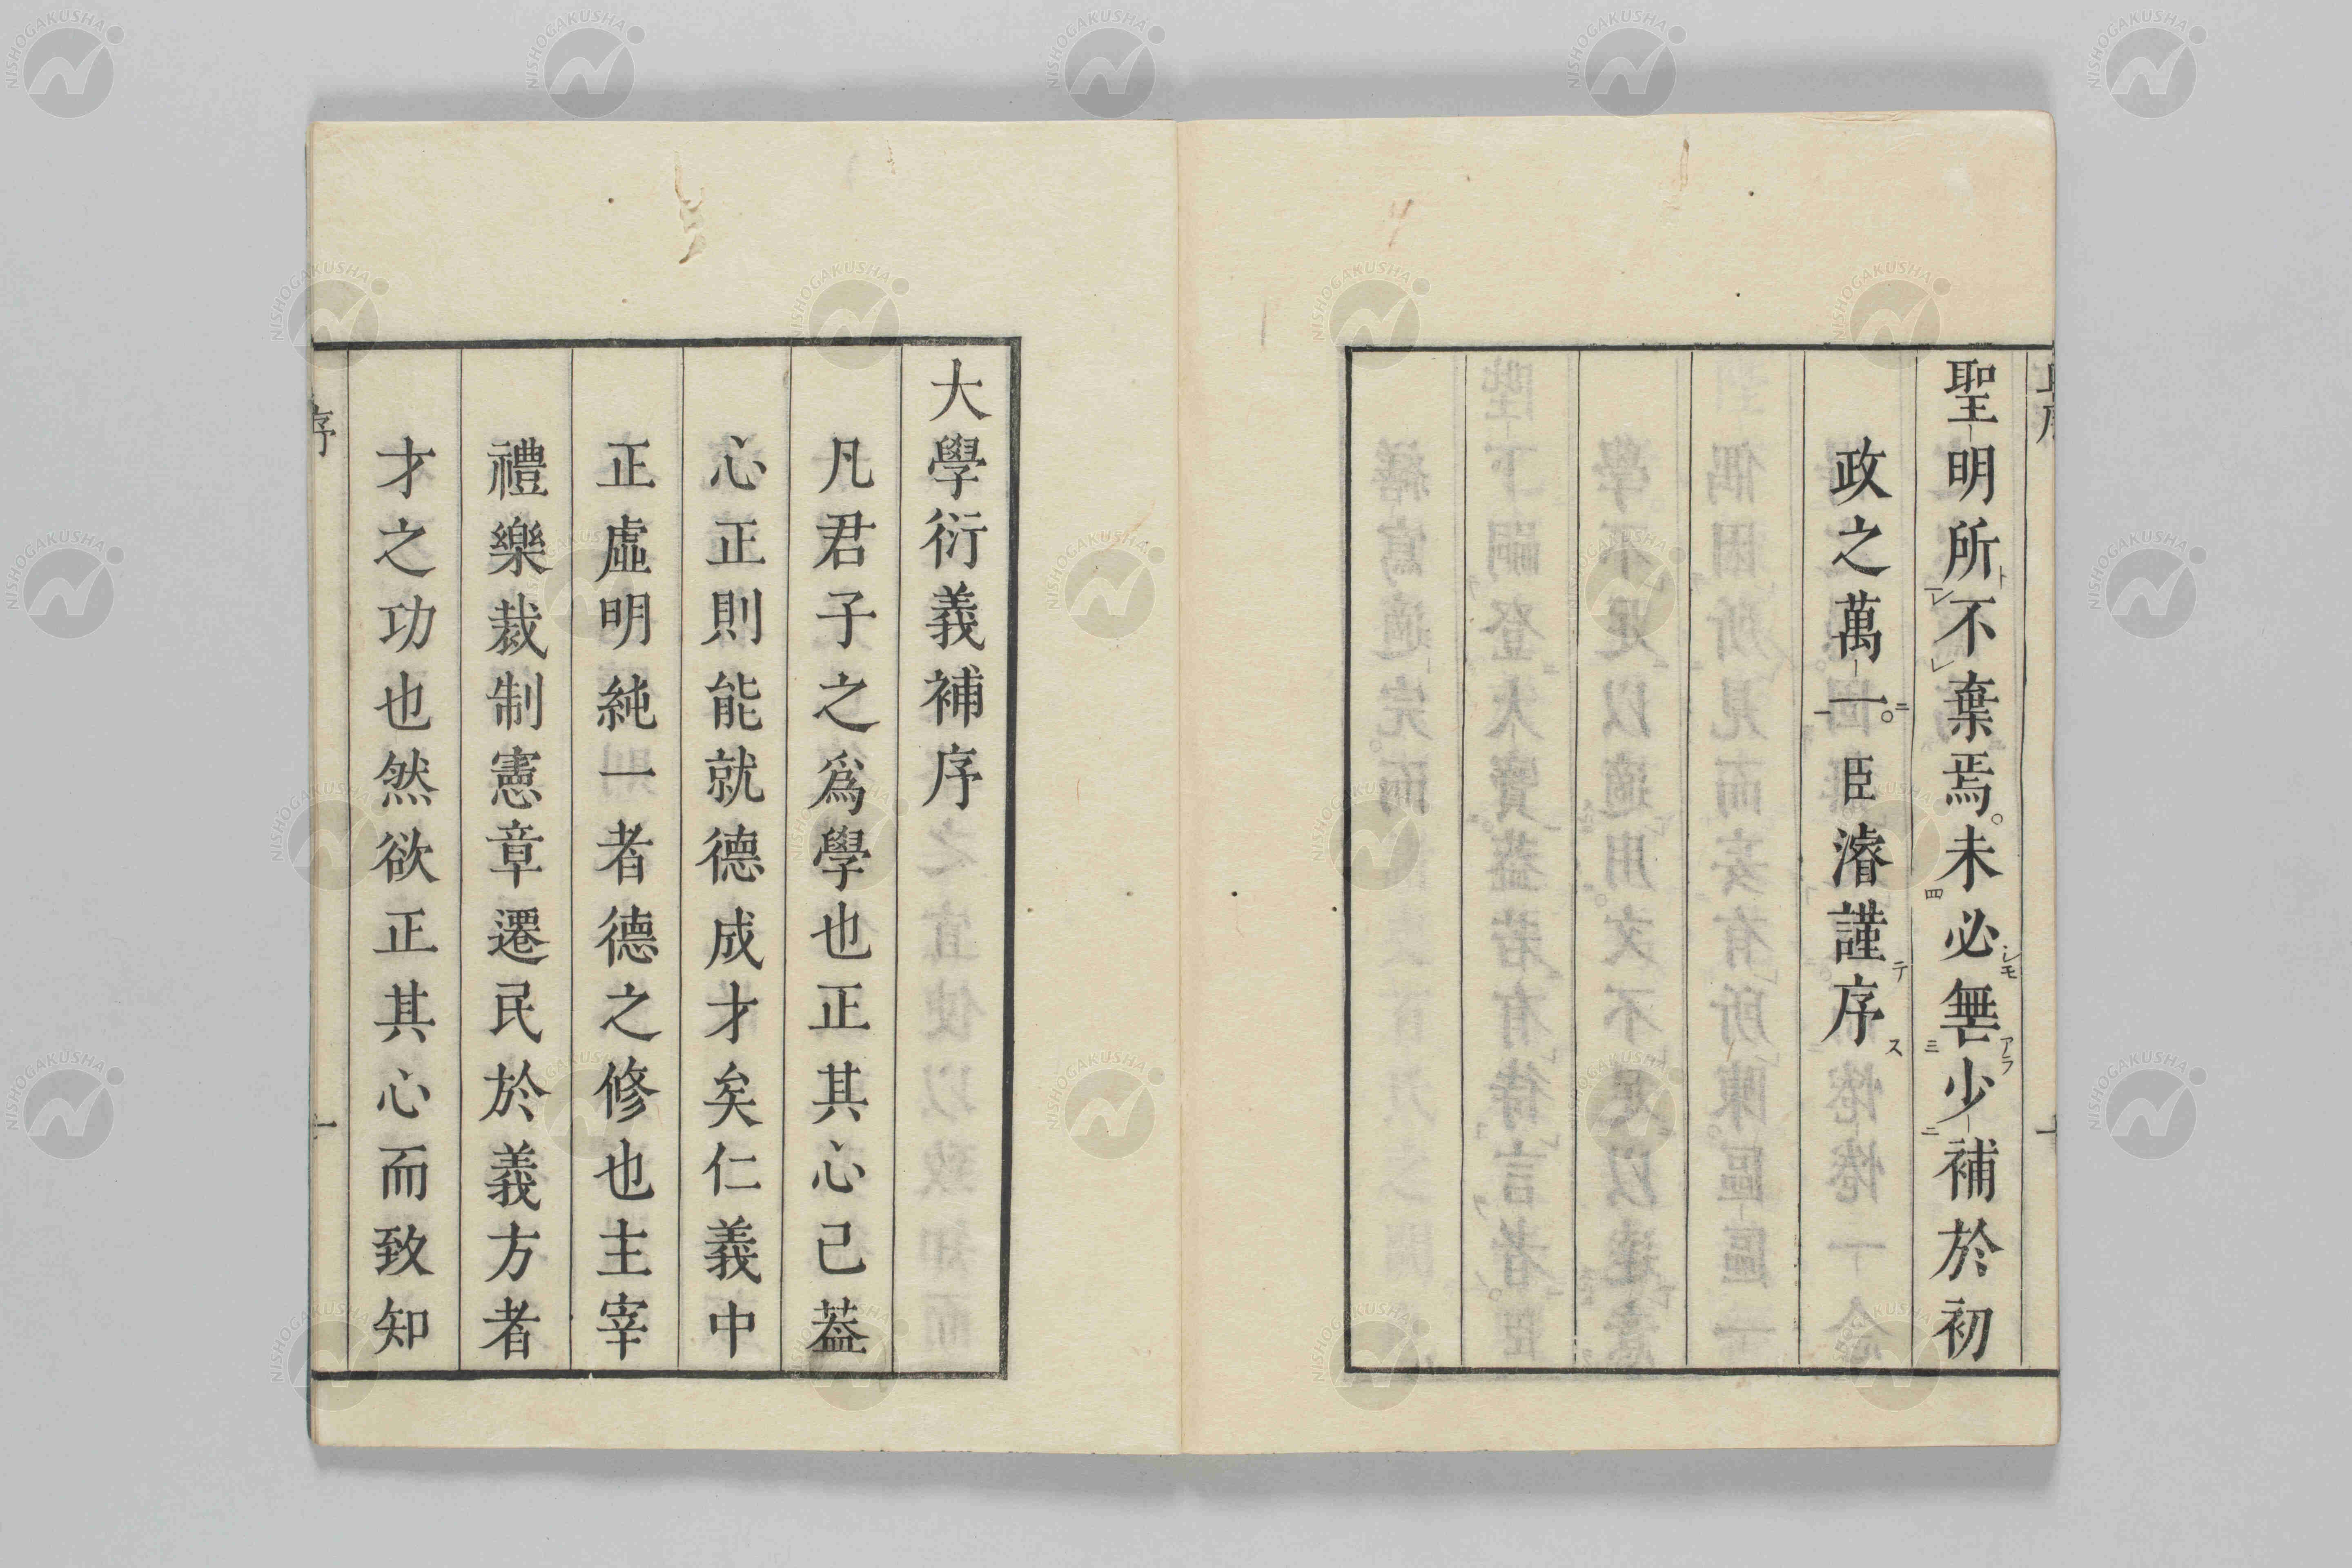 聖明所不棄焉。未必無少補於初
政之萬一。臣濬謹序
大學衍義補序
凡君子之爲學也正其心已蓋
心正則能就德成才矣仁義中
正虛明純一者德之修也主宰
禮樂裁制憲章遷民於義方者
才之功也然欲正其心而致知
序
一
NISHOGAKUSHA